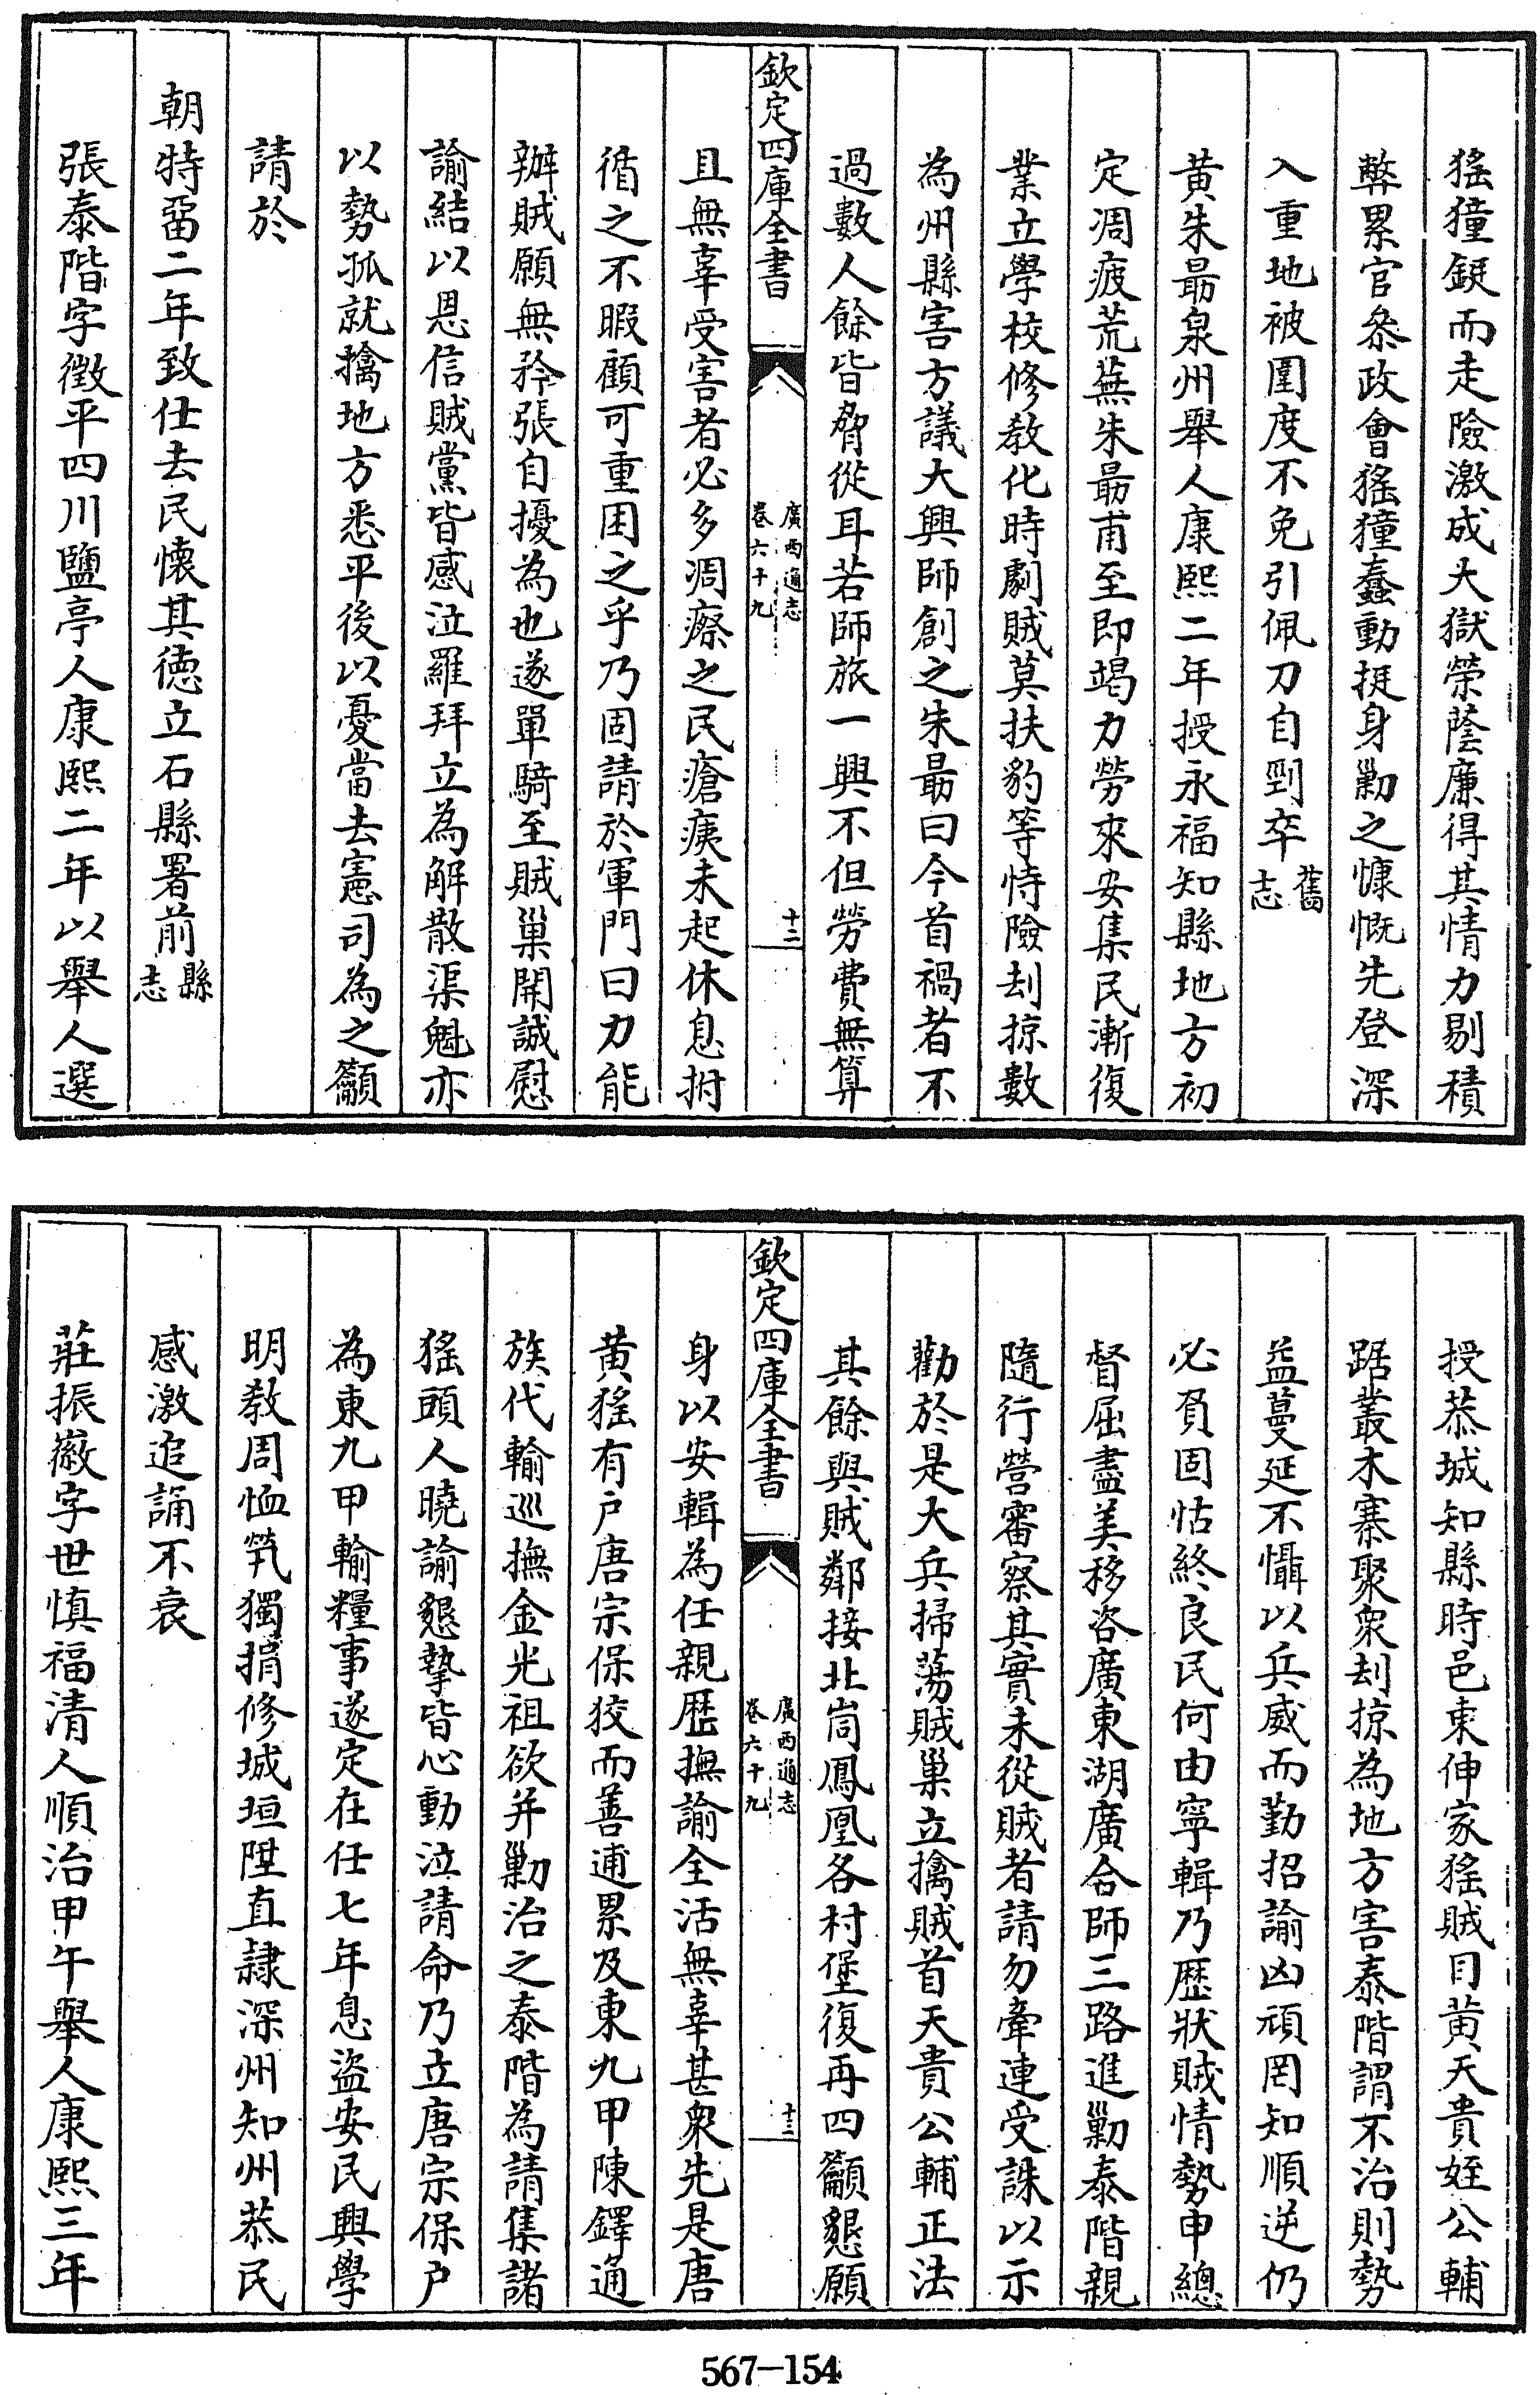 猺獞鋌而走險激成大獄榮蔭廉得其情力剔積
弊累官叅政會猺獞蠢動挺身勦之慷慨先登深
入重地被圍度不免引佩刀自剄卒舊志
黄朱最泉州舉人康熙二年授永福知縣地方初
定凋疲荒蕪朱最甫至即竭力勞來安集民漸復
業立學校修教化時劇賊莫扶豹等恃險刦掠數
為州縣害方議大興師創之朱最曰今首禍者不
過數人餘皆脅從耳若師旅一興不但勞費無算
欽定四庫全書
廣西通志
卷六十九
十二
且無辜受害者必多凋瘵之民瘡痍未起休息拊
循之不暇顧可重困之乎乃固請於軍門曰力能
辦賊願無矜張自擾為也遂單騎至賊巢開誠慰
諭結以恩信賊黨皆感泣羅拜立為解散渠魁亦
以勢孤就擒地方悉平後以憂當去憲司為之籲
請於
朝特留二年致仕去民懐其徳立石縣署前縣志
張泰階字徴平四川鹽亭人康熙二年以舉人選
授恭城知縣時邑東伸家猺賊目黄天貴姪公輔
踞叢木寨聚衆刦掠為地方害泰階謂不治則勢
益蔓延不懾以兵威而勤招諭凶頑罔知順逆仍
必負固怙終良民何由寧輯乃歴狀賊情勢申總
督屈盡美移咨廣東湖廣合師三路進勦泰階親
隨行營審察其實未從賊者請勿牽連受誅以示
勸於是大兵掃蕩賊巢立擒賊首天貴公輔正法
其餘與賊鄰接北峝鳳凰各村堡復再四籲懇願
欽定四庫全書
廣西通志
卷六十九
十三
身以安輯為任親歴撫諭全活無辜甚衆先是唐
黄猺有户唐宗保狡而善逋累及東九甲陳鐸通
族代輸巡撫金光祖欲并勦治之泰階為請集諸
猺頭人曉諭懇摯皆心動泣請命乃立唐宗保户
為東九甲輸糧事遂定在任七年息盗安民興學
明教周恤煢獨捐修城垣陞直隷深州知州恭民
感激追誦不衰
莊振徽字世慎福清人順治甲午舉人康熙三年
567-154